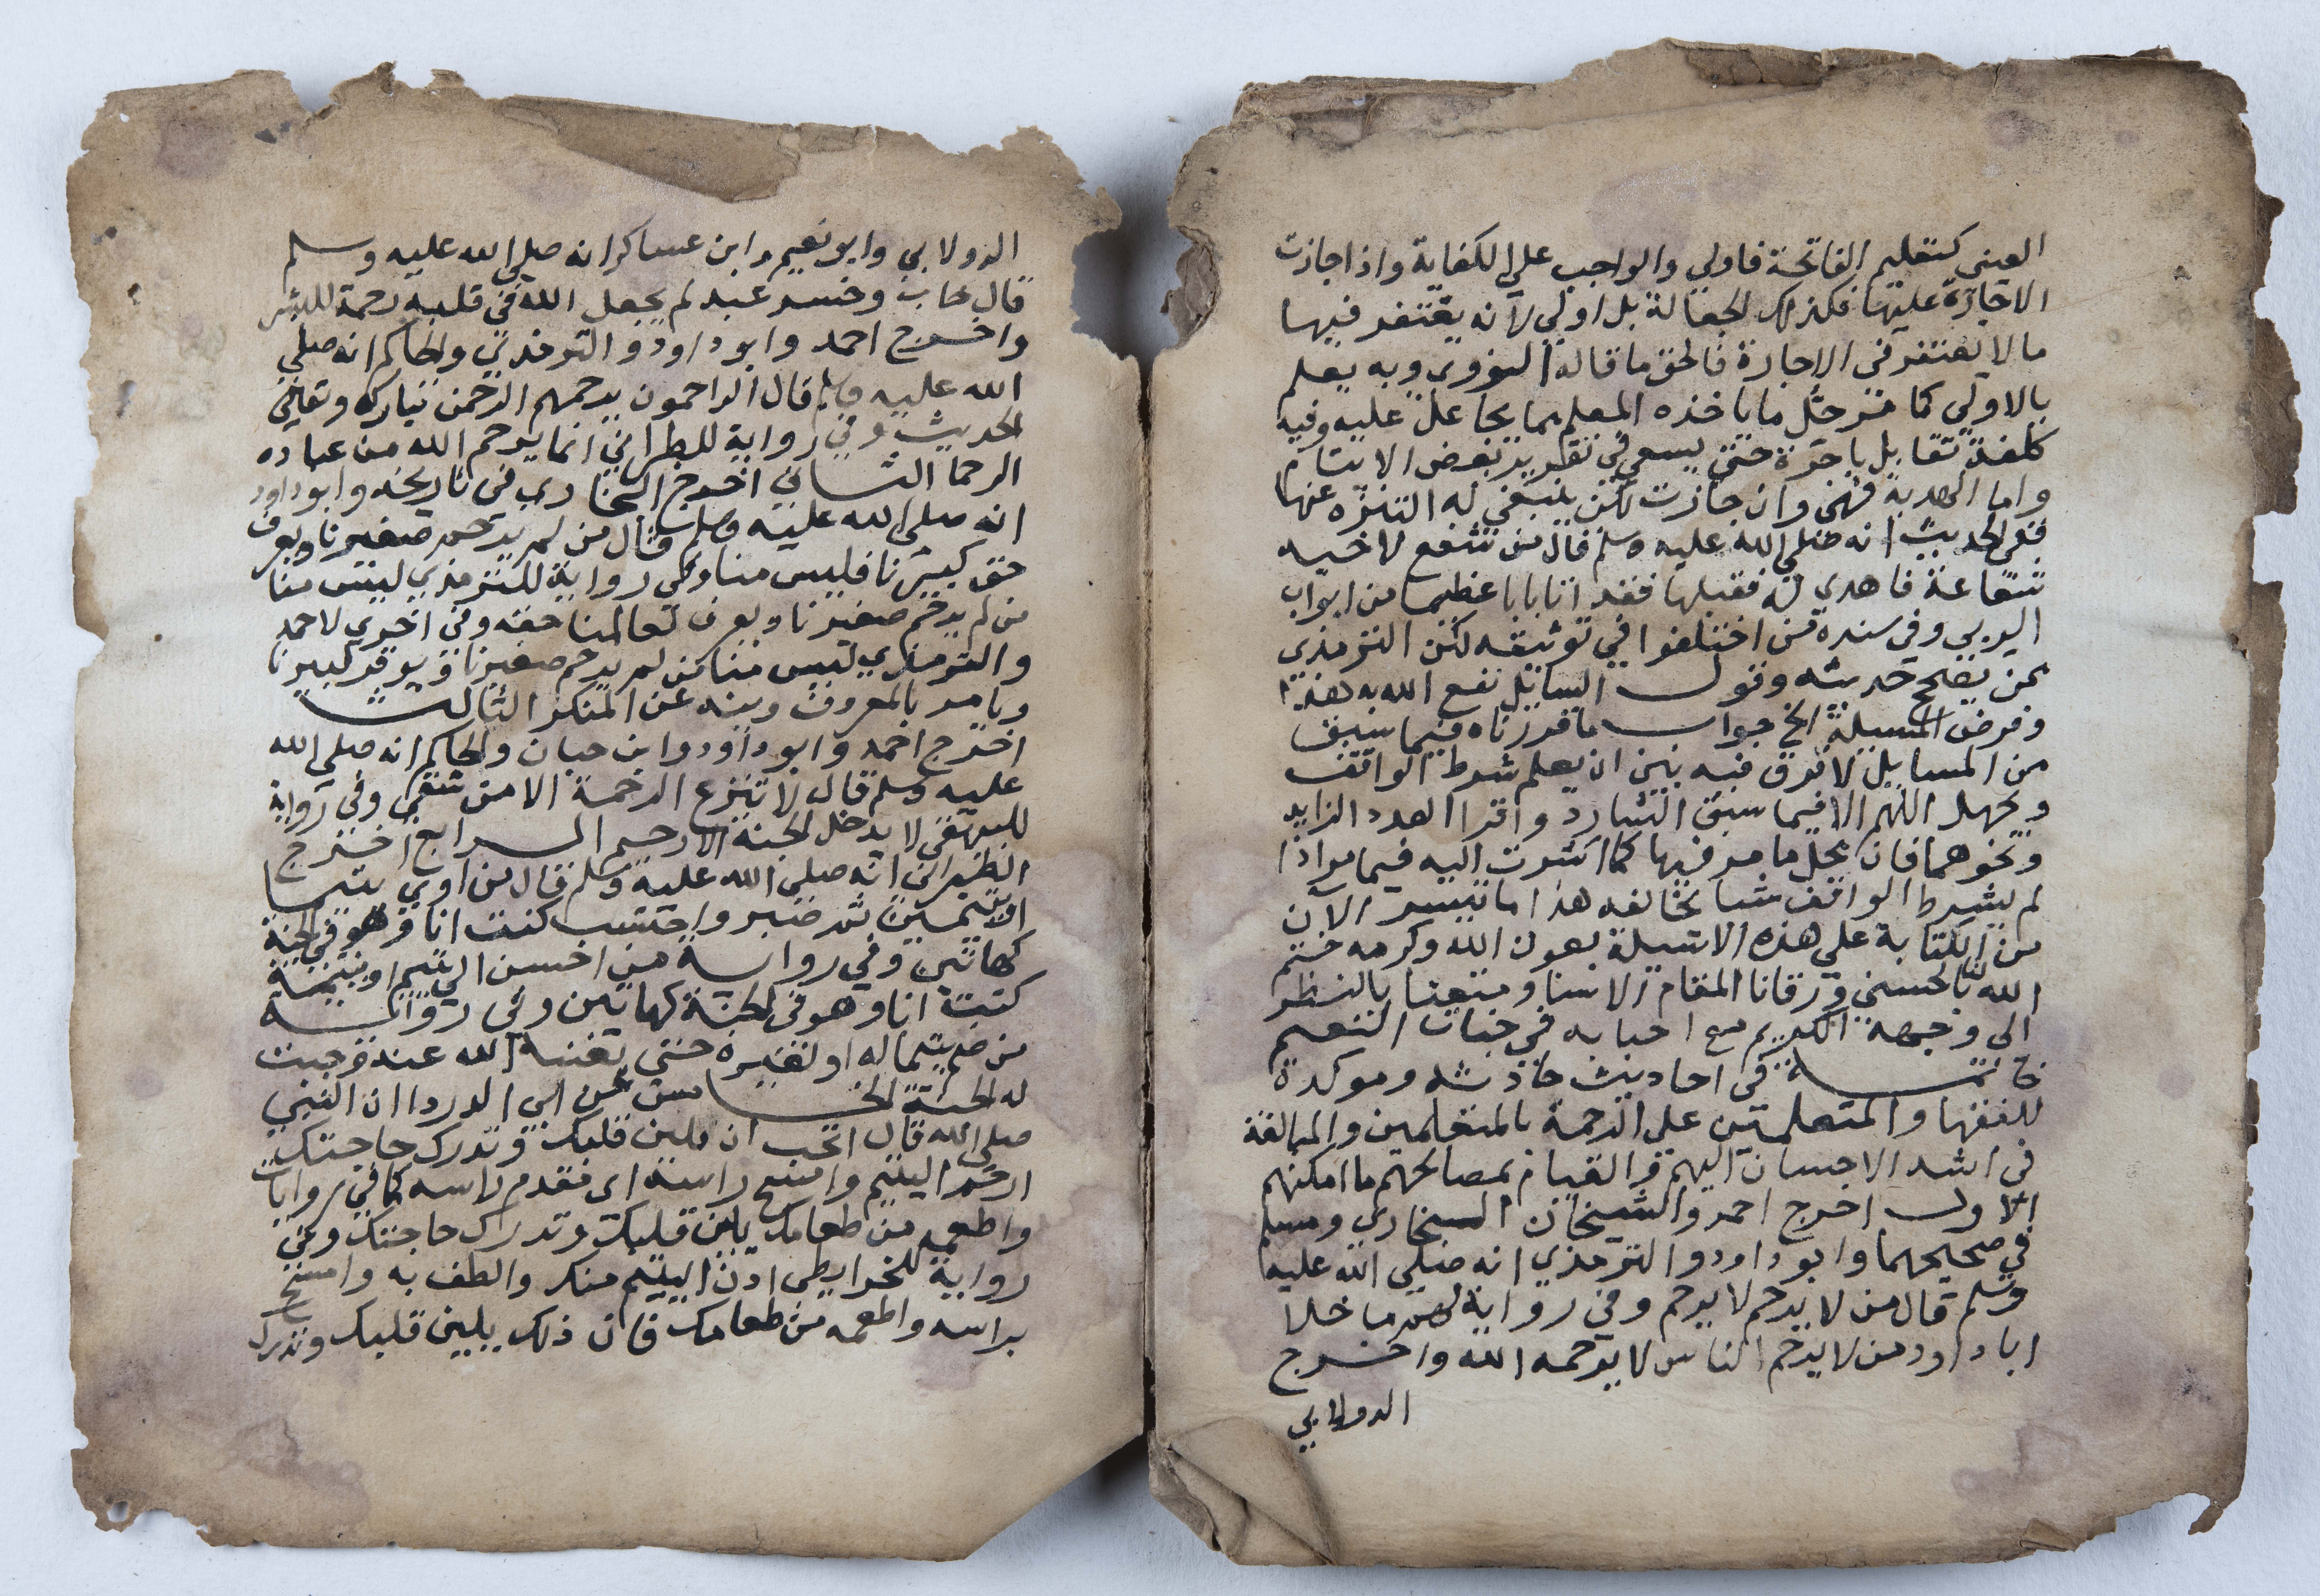 العيني كتعليم الفاتحة فاولي والواجب علي الكفاية واذا جازت
الاجارة عليها فكذلك الجعالة بل اولي لانه يغتفر فيها
ما لا يغتفر في الاجارة فالحق ما قاله النووي وبه يعلم
بالاولي كما مر حل ما ياخذه المعلم مما يجاعل عليه وفيه
كلفة تقابل باجرة حتي يسعي في تقرير بعض الايتام
واما الهدية فهي وان جازت لكن ينبغي له التنزه عنها
ففي الحديث انه صلي الله عليه وسلم قال من شفع لاخيه
شفاعة فاهدي له فقبلها فقد اتا بابا عظيما من ابواب
الربي وفي سنده من اختلفوا في توثيقه لكن الترمذي
ممن يصحح حديثه وقول السايل نفع الله به هذا
وفرض المسيلة الخ جواب ما قررناه فيما سبق
من المسايل لا فرق فيه بين ان يعلم شرط الواقف
ويجهل اللهم الا فيما سبق الشارد واقرا العدد الزايد
ونحوهما فان محل ما مر فيها كما اشرت اليه فيما مر اذا
لم يشرط الواقف شيا يخالفه هذا ما تيسر الان
من الكتابة علي هذه الاسيلة بعون الله وكرمه ختم
الله لنا بالحسني ورقانا المقام الاسنا ومتعنا بالنظر
الي وجهه الكريم مع احبابه في جنات النعيم
خاتمـــة في احاديث حاثة وموكدة
للفقها والمتعلمين علي الرحمة بالمتعلمين والمبالغة
في اشد الاحسان اليهم والقيام بمصالحهم ما امكنهم
الاول اخرج احمد والشيخان البخاري ومسلم
في صحيحهما وابو داود والترمذي انه صلي الله عليه
وسلم قال من لا يرحم لا يرحم وفي رواية لهم ما خلا
ابا داود من لا يرحم الناس لا يرحمه الله واخرج
الدولابي
الدولابي وابو نعيم وابن عساكر انه صلي الله عليه وسلم
قال خاب وخسر عبد لم يجعل الله في قلبه رحمة للبشر
واخرج احمد وابو داود والترمذي والحاكم انه صلي
الله عليه وسلم قال الراحمون يرحمهم الرحمن تبارك وتعالي
الحديث وفي رواية للطبراني انما يرحم الله من عباده
الرحما الثـاني اخرج البخاري في تاريخه وابو داود
انه صلي الله عليه وسلم قال من لم يرحم صغيرنا ويعرف
حق كبيرنا فليس منا وفي رواية للترمذي ليس منا
من لم يرحم صغيرنا ويعرف لعالمنا حقه وفي اخري لاحمد
والترمذي ليس منا من لم يرحم صغيرنا ويوقر كبيرنا
ويامر بالمعروف وينه عن المنكر الثالث
اخرج احمد وابو داود وابن حبان والحاكم انه صلي الله
عليه وسلم قال لا تنزع الرحمة الا من شقي وفي رواية
للبيهقي لا يدخل الجنة الا رحيم الـرابع اخرج
الطبراني انه صلي الله عليه وسلم قال من اوي يتيما
او يتيمين ثم صبر واحتسب كنت انا وهو في الجنة
كهاتين وفي رواية من احسن الي يتيم او يتيمة
كنت انا وهو في الجنة كهاتين وفي رواية
من ضم يتيما له او لغيره حتي يغنيه الله عنه وجبت
له الجنة الخـامس عن ابي الدردا ان النبي
صلي الله قال اتحب ان يلين قلبك وتدرك حاجتك
ارحم اليتيم وامسح راسه اي مقدم راسه كما في روايات
واطعمه من طعامك يلن قلبك وتدرك حاجتك وفي
رواية للخرايطي ادن اليتيم منك والطف به وامسح
براسه واطعمه من طعامك فان ذلك يلين قلبك وتدرك